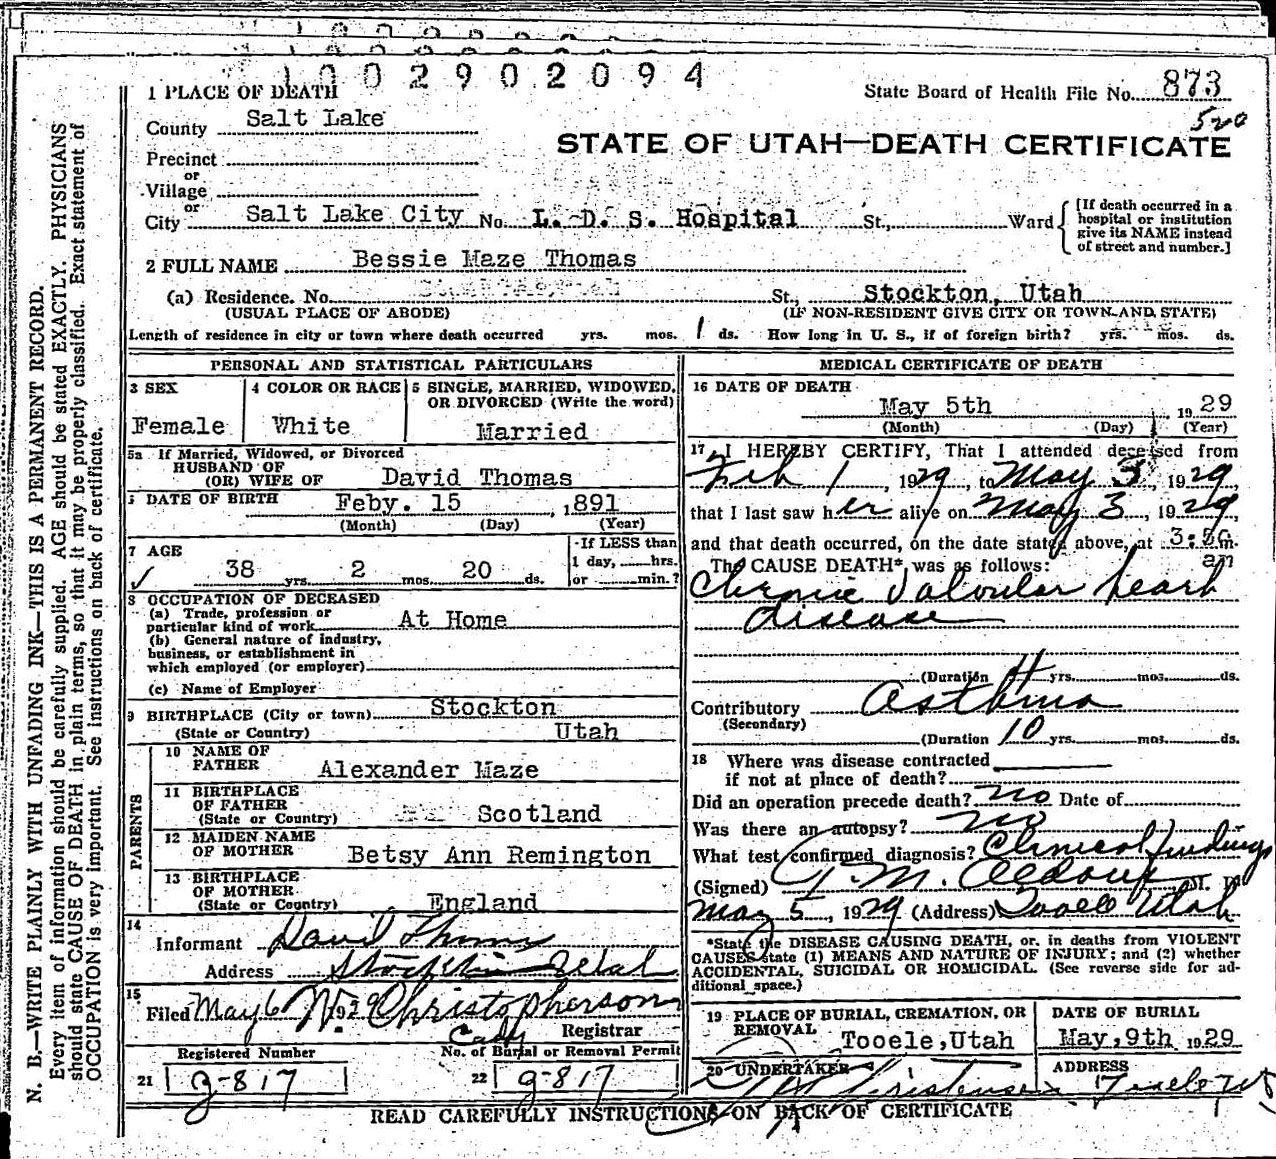 1002902094
1 PLACE OF DEATH
State Board of Health File No. 873
County Salt Lake
520
STATE OF UTAH—DEATH CERTIFICATE
Precinct
or
Village
or
City Salt Lake City No. L. D. S. Hospital St., Ward
[If death occurred in a
hospital or institution
give its NAME instead
of street and number.]
2 FULL NAME Bessie Maze Thomas
(a) Residence. No. St., Stockton, Utah
(USUAL PLACE OF ABODE) (IF NON-RESIDENT GIVE CITY OR TOWN AND STATE)
Length of residence in city or town where death occurred yrs. mos. 1 ds. How long in U. S., if of foreign birth? yrs. mos. ds.
PERSONAL AND STATISTICAL PARTICULARS
3 SEX
Female
4 COLOR OR RACE
White
5 SINGLE, MARRIED, WIDOWED,
OR DIVORCED (Write the word)
Married
5a If Married, Widowed, or Divorced
HUSBAND OF
(OR) WIFE OF David Thomas
DATE OF BIRTH Feby. 15, 1891
(Month) (Day) (Year)
7 AGE
38 yrs. 2 mos. 20 ds.
If LESS than
1 day, hrs.
or min.?
8 OCCUPATION OF DECEASED
(a) Trade, profession or
particular kind of work At Home
(b) General nature of industry,
business, or establishment in
which employed (or employer)
(c) Name of Employer
9 BIRTHPLACE (City or town) Stockton
(State or Country) Utah
PARENTS
10 NAME OF
FATHER Alexander Maze
11 BIRTHPLACE
OF FATHER
(State or Country) Scotland
12 MAIDEN NAME
OF MOTHER Betsy Ann Remington
13 BIRTHPLACE
OF MOTHER
(State or Country) England
14
Informant David Thomas
Address Stockton Utah
15
Filed May 6 1929 Christopherson
Registrar
Registered Number
No. of Burial or Removal Permit
21 g-817
22 g-817
MEDICAL CERTIFICATE OF DEATH
16 DATE OF DEATH
May 5th 1929
(Month) (Day) (Year)
17 I HEREBY CERTIFY, That I attended deceased from
Feb 1, 1929, to May 3, 1929,
that I last saw her alive on May 3, 1929,
and that death occurred, on the date stated above, at 3:50 m.
am
The CAUSE DEATH* was as follows:
Chronic Valvular heart
disease
(Duration 4 yrs. mos. ds.
Contributory Asthma
(Secondary)
(Duration 10 yrs. mos. ds.
18 Where was disease contracted
if not at place of death?
Did an operation precede death? no Date of
Was there an autopsy? no
What test confirmed diagnosis? Clinical findings
(Signed) M. D.
May 5, 1929 (Address) Tooele Utah
*State the DISEASE CAUSING DEATH, or in deaths from VIOLENT
CAUSES state (1) MEANS AND NATURE OF INJURY; and (2) whether
ACCIDENTAL, SUICIDAL OR HOMICIDAL. (See reverse side for ad-
ditional space.)
19 PLACE OF BURIAL, CREMATION, OR
REMOVAL
Tooele, Utah
DATE OF BURIAL
May, 9th 1929
20 UNDERTAKER
ADDRESS
Tooele
READ CAREFULLY INSTRUCTIONS ON BACK OF CERTIFICATE
N. B.—WRITE PLAINLY WITH UNFADING INK—THIS IS A PERMANENT RECORD.
Every item of information should be carefully supplied. AGE should be stated EXACTLY. PHYSICIANS
should state CAUSE OF DEATH in plain terms, so that it may be properly classified. Exact statement of
OCCUPATION is very important. See instructions on back of certificate.